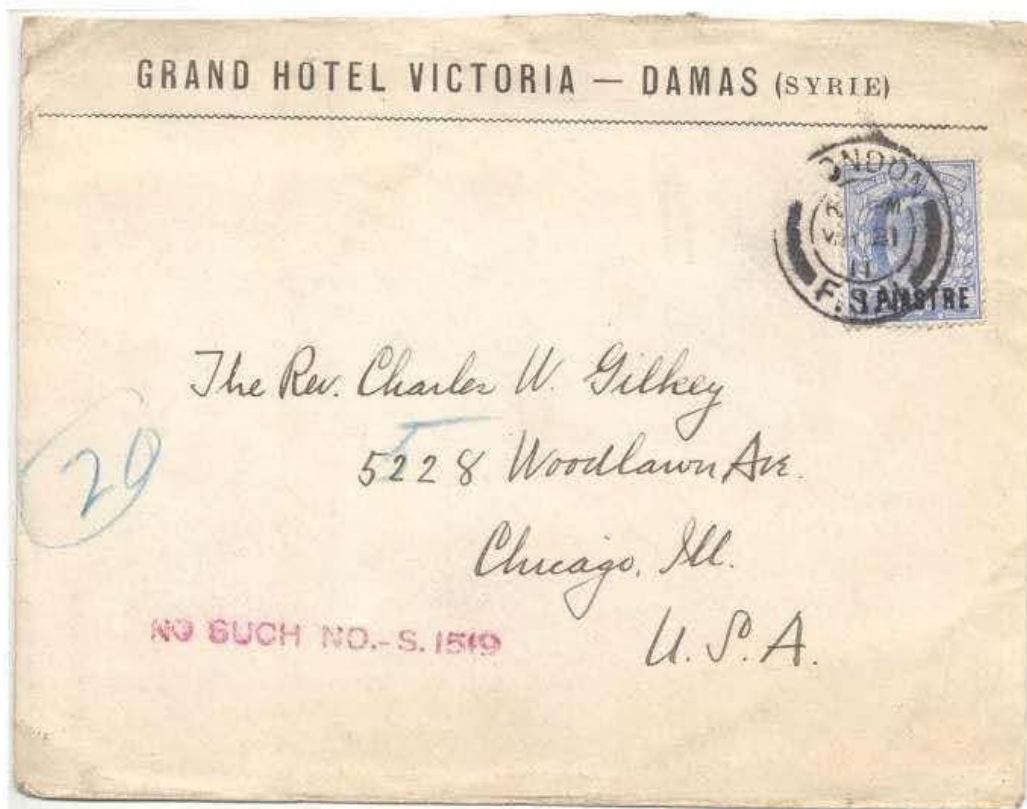 GRAND HOTEL VICTORIA — DAMAS (SYRIE)
ONDON
21
11
F.S.
1 PIASTRE
The Rev. Charles W. Gilkey
5228 Woodlawn Ave.
Chicago, Ill.
U.S.A.
20
NO SUCH NO.-S. 1519